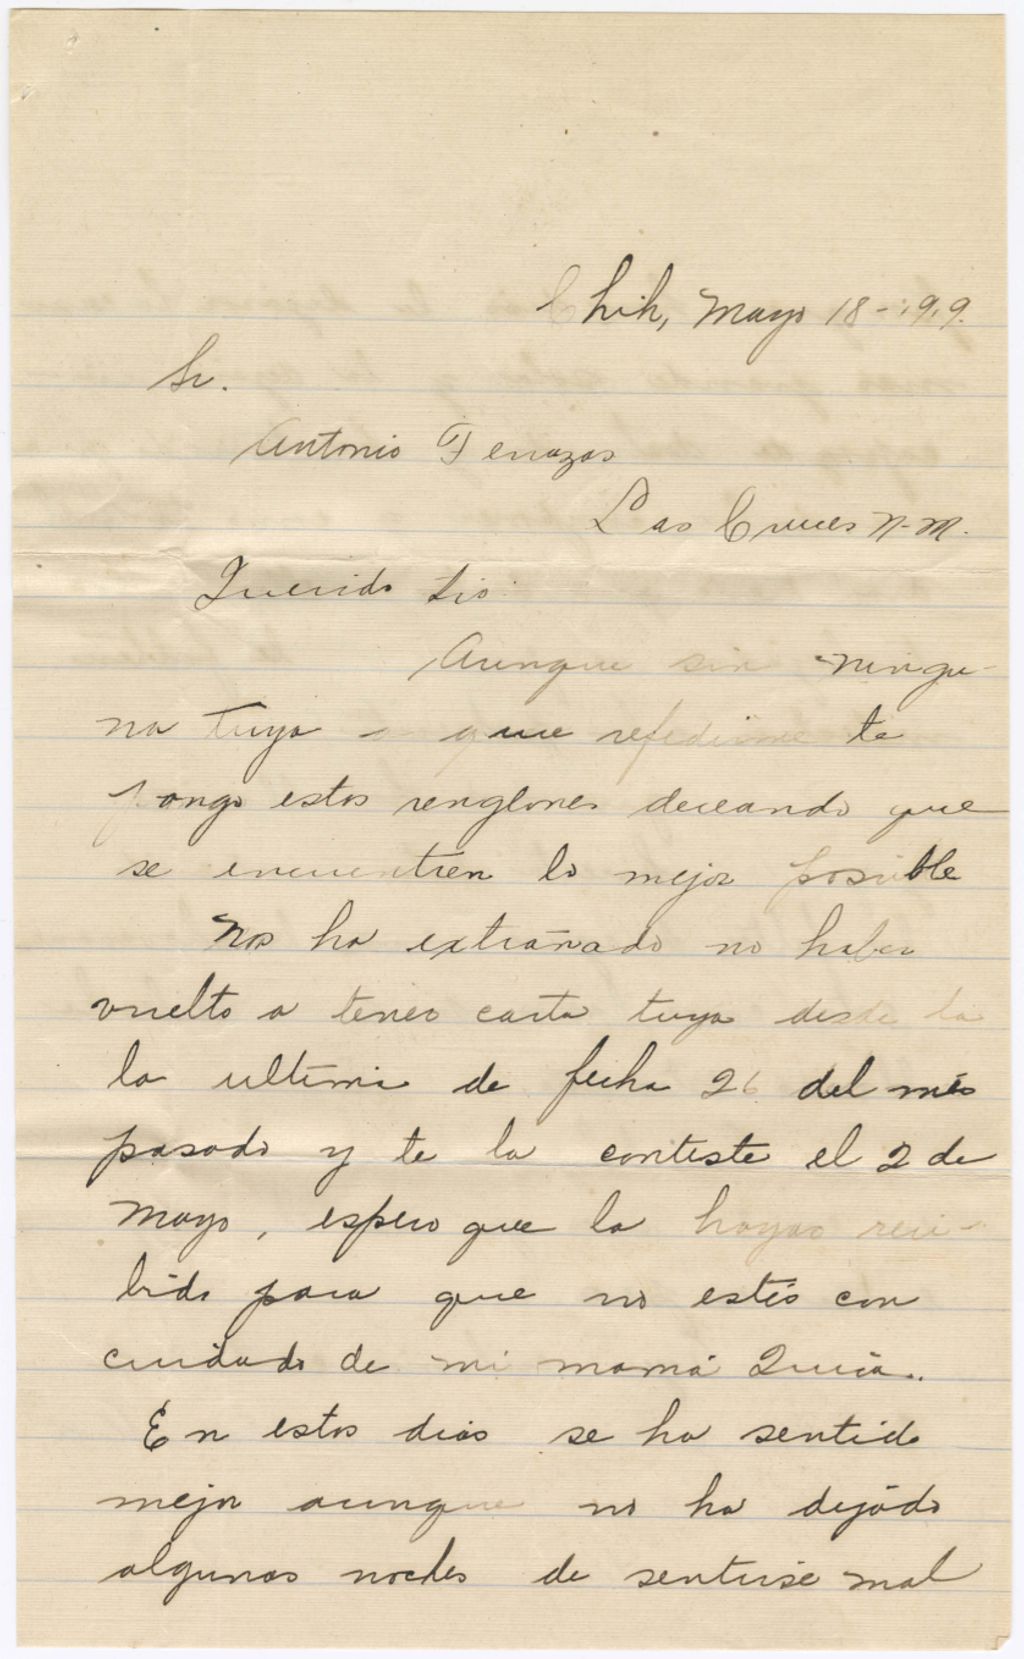 Chih, Mayo 18-1919.
Sr.
Antonio Terrazas
Las Cruces N-M.
Querido tio:
Aunque sin ningu-
na tuya a que refedirme te
pongo estos renglones deceando que
se encuentren lo mejor posible
Nos ha extrañado no haber
vuelto a tener carta tuya desde la
la ultima de fecha 26 del més
pasado y te la conteste el 2 de
Mayo, espero que la hayas reci-
bido para que no estés con
cuidado de mi mamá
En estos dias se ha sentido
mejor aunque no ha dejádo
algunas noches de sentirse mal